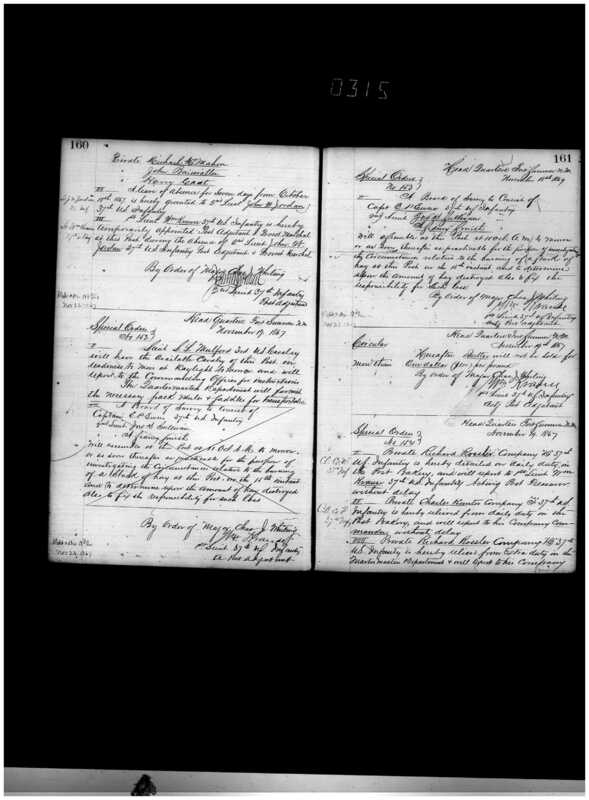 0315
160
Private Richard McMahon
" John
" Henry
III A leave of absence for Seven days from October
19th 1867 is hereby granted to 2nd Lieut John W Jordan
37th U.S. Infantry
IIII 1st Lieut Wm 37th U.S. Infantry is hereby
temporarily appointed Post Adjutant & Provost Marshal
of this Post during the absence of 2nd Lieut John W.
Jordan 37th U.S. Infantry Post Adjutant & Provost Marshal
By Order of Major Chas J Whiting
2nd Lieut 37th Infantry
Post Adjutant
Head Quarters Fort Sumner N.M.
November 19 1867
Special Orders
No 152
I Lieut S. L. Mulford 3rd U.S. Cavalry
will have the available Cavalry of this Post in
readiness to move at Daylight tomorrow and will
report to the Commanding Officer for instructions
The Quartermasters Department will furnish
the necessary pack mules & saddles for transportation
II A Board of Survey to consist of
Captain 37th U.S. Infantry
2nd Lieut Jas H Sullivan
" "
Will assemble at this Post at 10 Oclk A.M. to morrow
or as soon thereafter as practicable for the purpose of
investigating the circumstances relative to the burning
of a Stack of hay at this Post on the 18th instant
and to determine upon the amount of hay destroyed
also to fix the responsibility for such loss
By Order of Major Chas J Whiting
1st Lieut 37th U.S. Infantry
a Post Adjutant
161
Head Quarters Fort Sumner N.M.
November 18th 1867
Special Orders
No 153
A Board of Survey to Consist of
Capt 37th U.S. Infantry
2nd Lieut Jas H Sullivan
" "
Will assemble at this Post at 10 Oclk A.M. to morrow
or as soon thereafter as practicable for the purpose of investigating
the circumstances relative to the burning of a Stack of
hay at this Post on the 18th instant and to determine
upon the amount of hay destroyed also to fix the
responsibility for such loss
By Order of Major Chas J Whiting
1st Lieut 37th U.S. Infantry
Actg Post Adjutant
Head Quarters Fort Sumner N.M.
November 19th 1867
Circular
Hereafter Butter will not be sold for
more than One dollar ($1.00) per pound
By Order of Major Chas J Whiting
1st Lieut 37th U.S. Infantry
Actg Post Adjutant
Head Quarters Fort Sumner N.M.
November 19 1867
Special Orders
No 154
I Private Richard Rossler Company "H" 37th
U.S. Infantry is hereby detailed on daily duty in
the Post Bakery, and will report to 1st Lieut Wm
37th U.S. Infantry Acting Post Treasurer
without delay
II Private Charles Company 37 U.S.
Infantry is hereby relieved from daily duty in the
Post Bakery, and will report to his Company Com-
mander without delay
III Private Richard Rossler Company "H" 37th
U.S. Infantry is hereby relieved from Extra duty in the
Quartermasters Department & will report to his Company